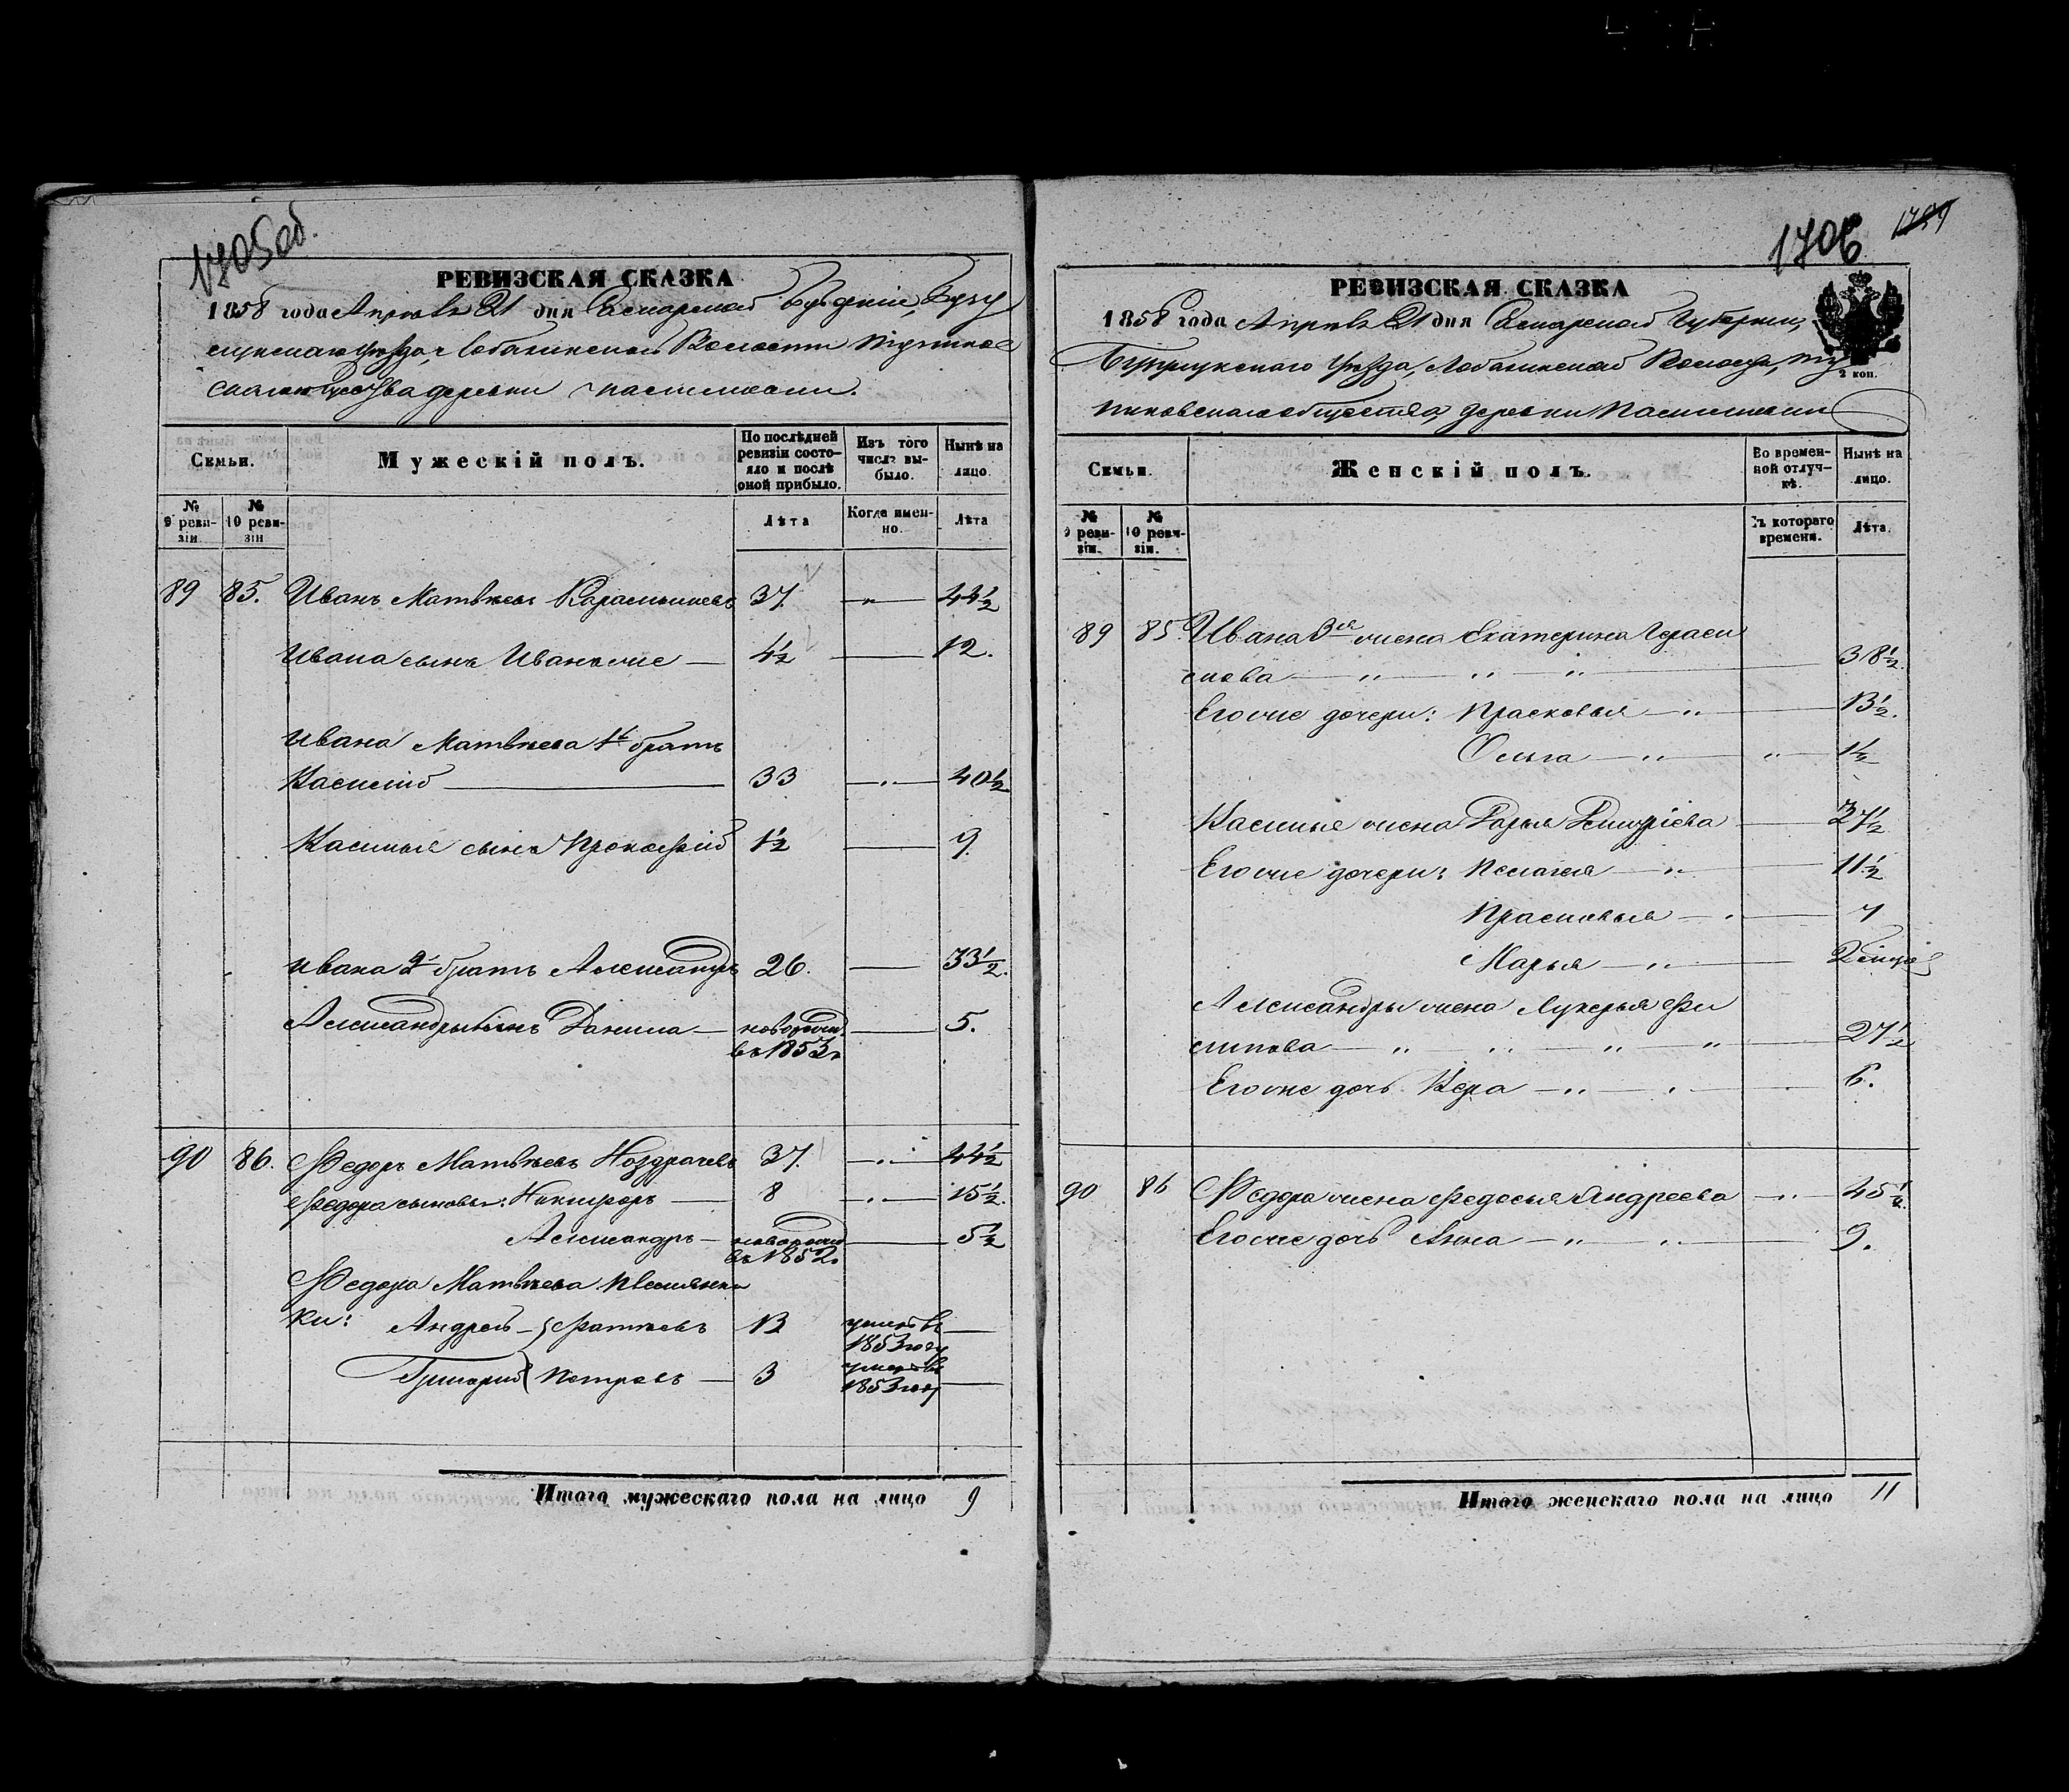 1705 об.
РЕВИЗСКАЯ СКАЗКА
1858 года Апреля 21 дня Самарской Губерніи, Бузу
лукскаго уѣзда, Лобазинской Волости
деревни
Семьи.
Мужескій полъ.
По послѣдней ревизіи состояло и послѣ оной прибыло.
Изъ того числа выбыло.
Нынѣ на лицо.
№ 9 ревизіи.
№ 10 ревизіи
Лѣта
Когда именно.
Лѣта
89 85. Иванъ Матвѣевъ 37. „ 44½
Ивана сынъ Иванъ же 4½ 12.
Ивана Матвѣева 1й братъ
Василій 33 „ 40½
Василья сынъ Прокофій 1½ 9
Ивана 2й братъ Александръ 26. 33½.
Александры сынъ Данила новорожд. 5.
въ 1853г.
90 86. Федоръ Матвѣевъ Ноздрачевъ 37. „ 44½
Федора сыновья: Никифоръ 8 „ 15½.
Александръ новорожд 5½
въ 1852г.
Федора Матвѣева племянни
ки: Андрей Фатѣевъ 13 умеръ въ
1853 году
Григорій Петровъ 3 умеръ въ
1853 году
Итого мужескаго пола на лицо 9
1706
РЕВИЗСКАЯ СКАЗКА
1858 года Апреля 21 дня Самарской Губерніи,
Бузулукскаго уѣзда, Лобазинской Волости,
общества, деревни
2 коп.
Семьи.
Женскій полъ.
Во временной отлучкѣ.
Нынѣ на лицо.
№ 9 ревизіи.
№ 10 ревизіи.
Съ котораго времени.
Лѣта.
89 85. Ивана 3ья жена Екатерина Гераси
мова „ „ „ 38½.
Его же дочери: Прасковья „ 13½.
Ольга „ „ 1½
Василья жена Дарья Дмитріева 37½
Его же дочери: Пелагея „ 11½
Прасковья 7
Марья „
Александры жена Лукерья Фи
липова „ „ „ „ 27½
Его же дочь Вера „ 6.
90 86 Федора жена Федосья Андреева „ 45½.
Его же дочь Анна „ 9.
Итого женскаго пола на лицо 11